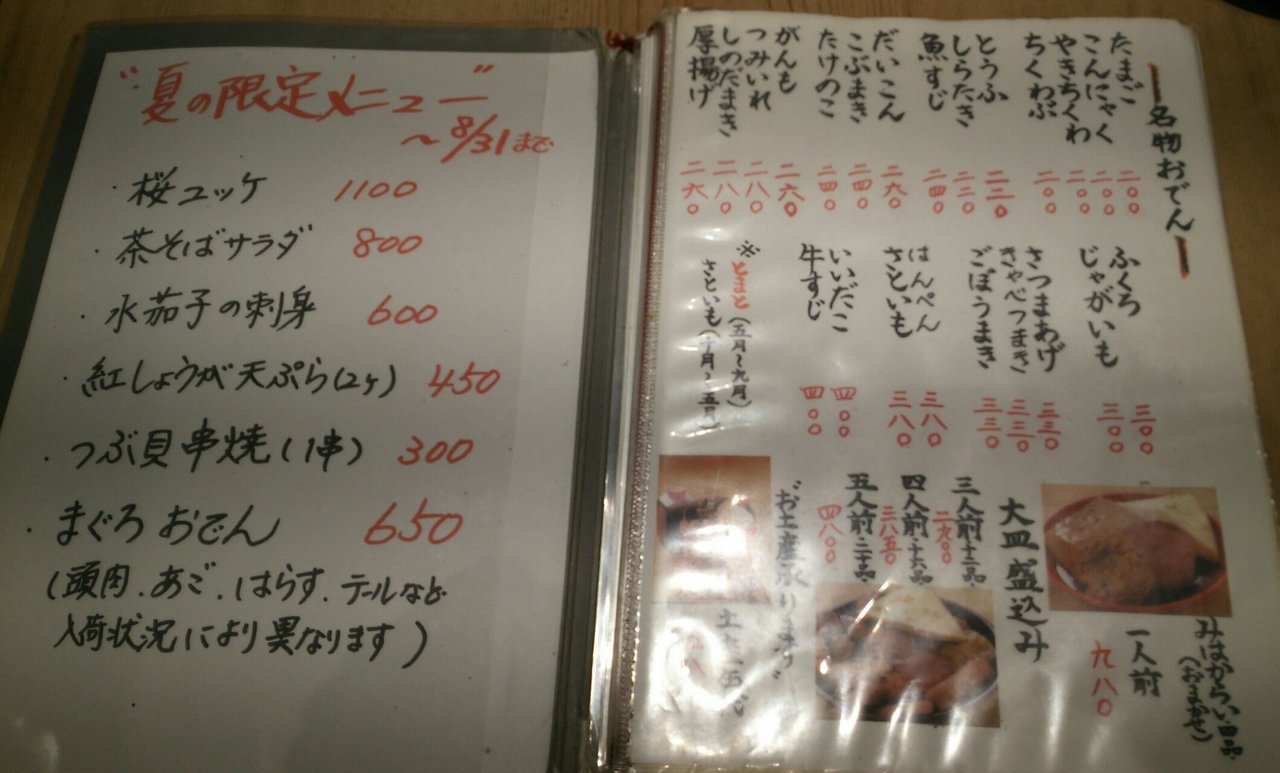 "夏の限定メニュー"
～8/31まで
・桜ユッケ 1100
・茶そばサラダ 800
・水茄子の刺身 600
・紅しょうが天ぷら(2ヶ) 450
・つぶ貝串焼(1串) 300
・まぐろおでん 650
(頭肉.あご.はらす.テールなど
入荷状況により異なります)
名物おでん
たまご 二〇〇
こんにゃく 二〇〇
やきちくわ 二〇〇
ちくわぶ 二〇〇
とうふ 二三〇
しらたき 二三〇
魚すじ 二四〇
だいこん 二六〇
こぶまき 二四〇
たけのこ 二四〇
がんも 二六〇
つみいれ 二八〇
しのだまき 二八〇
厚揚げ 二六〇
ふくろ 三〇〇
じゃがいも 三〇〇
さつまあげ 三三〇
きゃべつまき 三三〇
ごぼうまき 三三〇
はんぺん 三八〇
さといも 三八〇
いいだこ 四〇〇
牛すじ 四〇〇
※とまと(五月～九月)
さといも(十月～五月)
みはからい四品
(おまかせ)
一人前 九八〇
大皿盛込み
三人前・十二品 二九〇〇
四人前・十六品 三八五〇
五人前・二十品 四八〇〇
"お土産承ります"